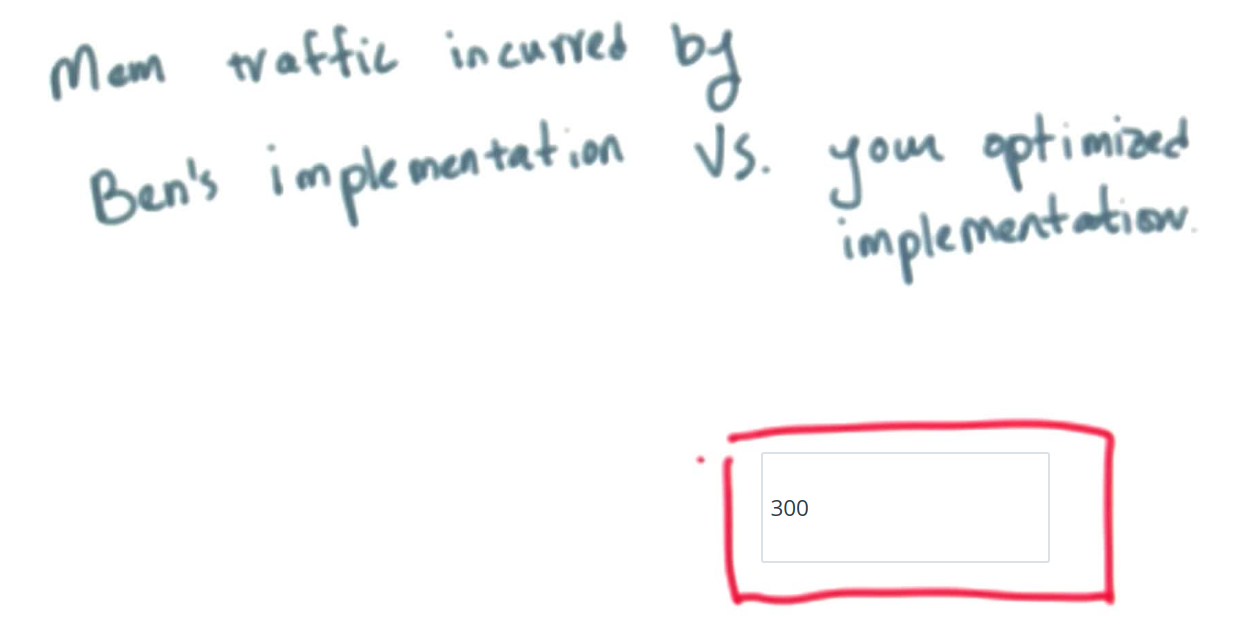 Mem traffic incurred by
Ben's implementation vs. your optimized
implementation.
300